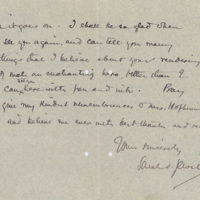 it goes on - I shall be so glad when
see you again, and can tell you many
things that I believe about your
make an enchanting better than I
can here with pen and ink. Pray
give my kindest remembrances to Mrs.
and believe me ever with best thanks and
Yours sincerely